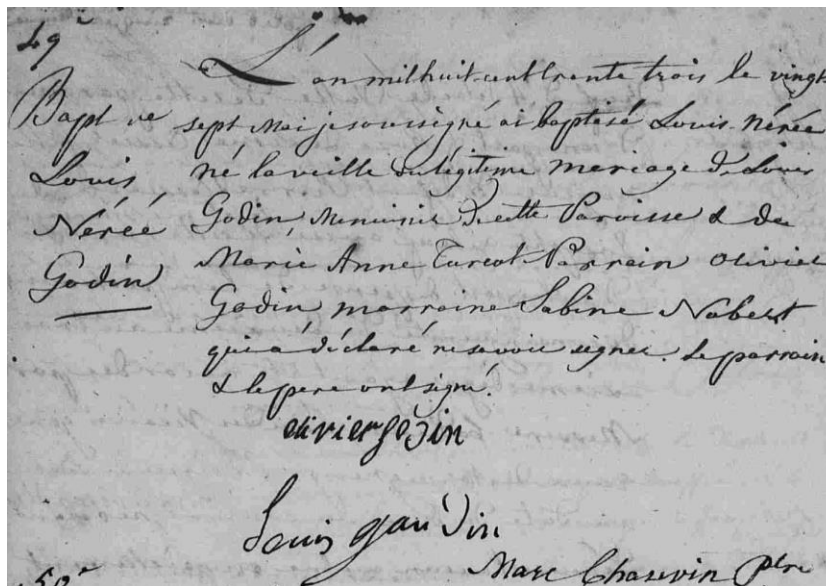 49e
Bapt de
Louis
Nérée
Godin
L'an mil huit cent trente trois le vingt
sept Mai je soussigné ai baptisé Louis Nérée
né la veille du légitime mariage de Louis
Godin Menuisier de cette Paroisse & de
Marie Anne Turcot. Parrain Olivier
Godin marraine Sabine Nobert
qui a déclaré ne savoir signer. Le parrain
& le pere ont signé.
olivier godin
Louis gaudin
Marc Chauvin Ptre
50e